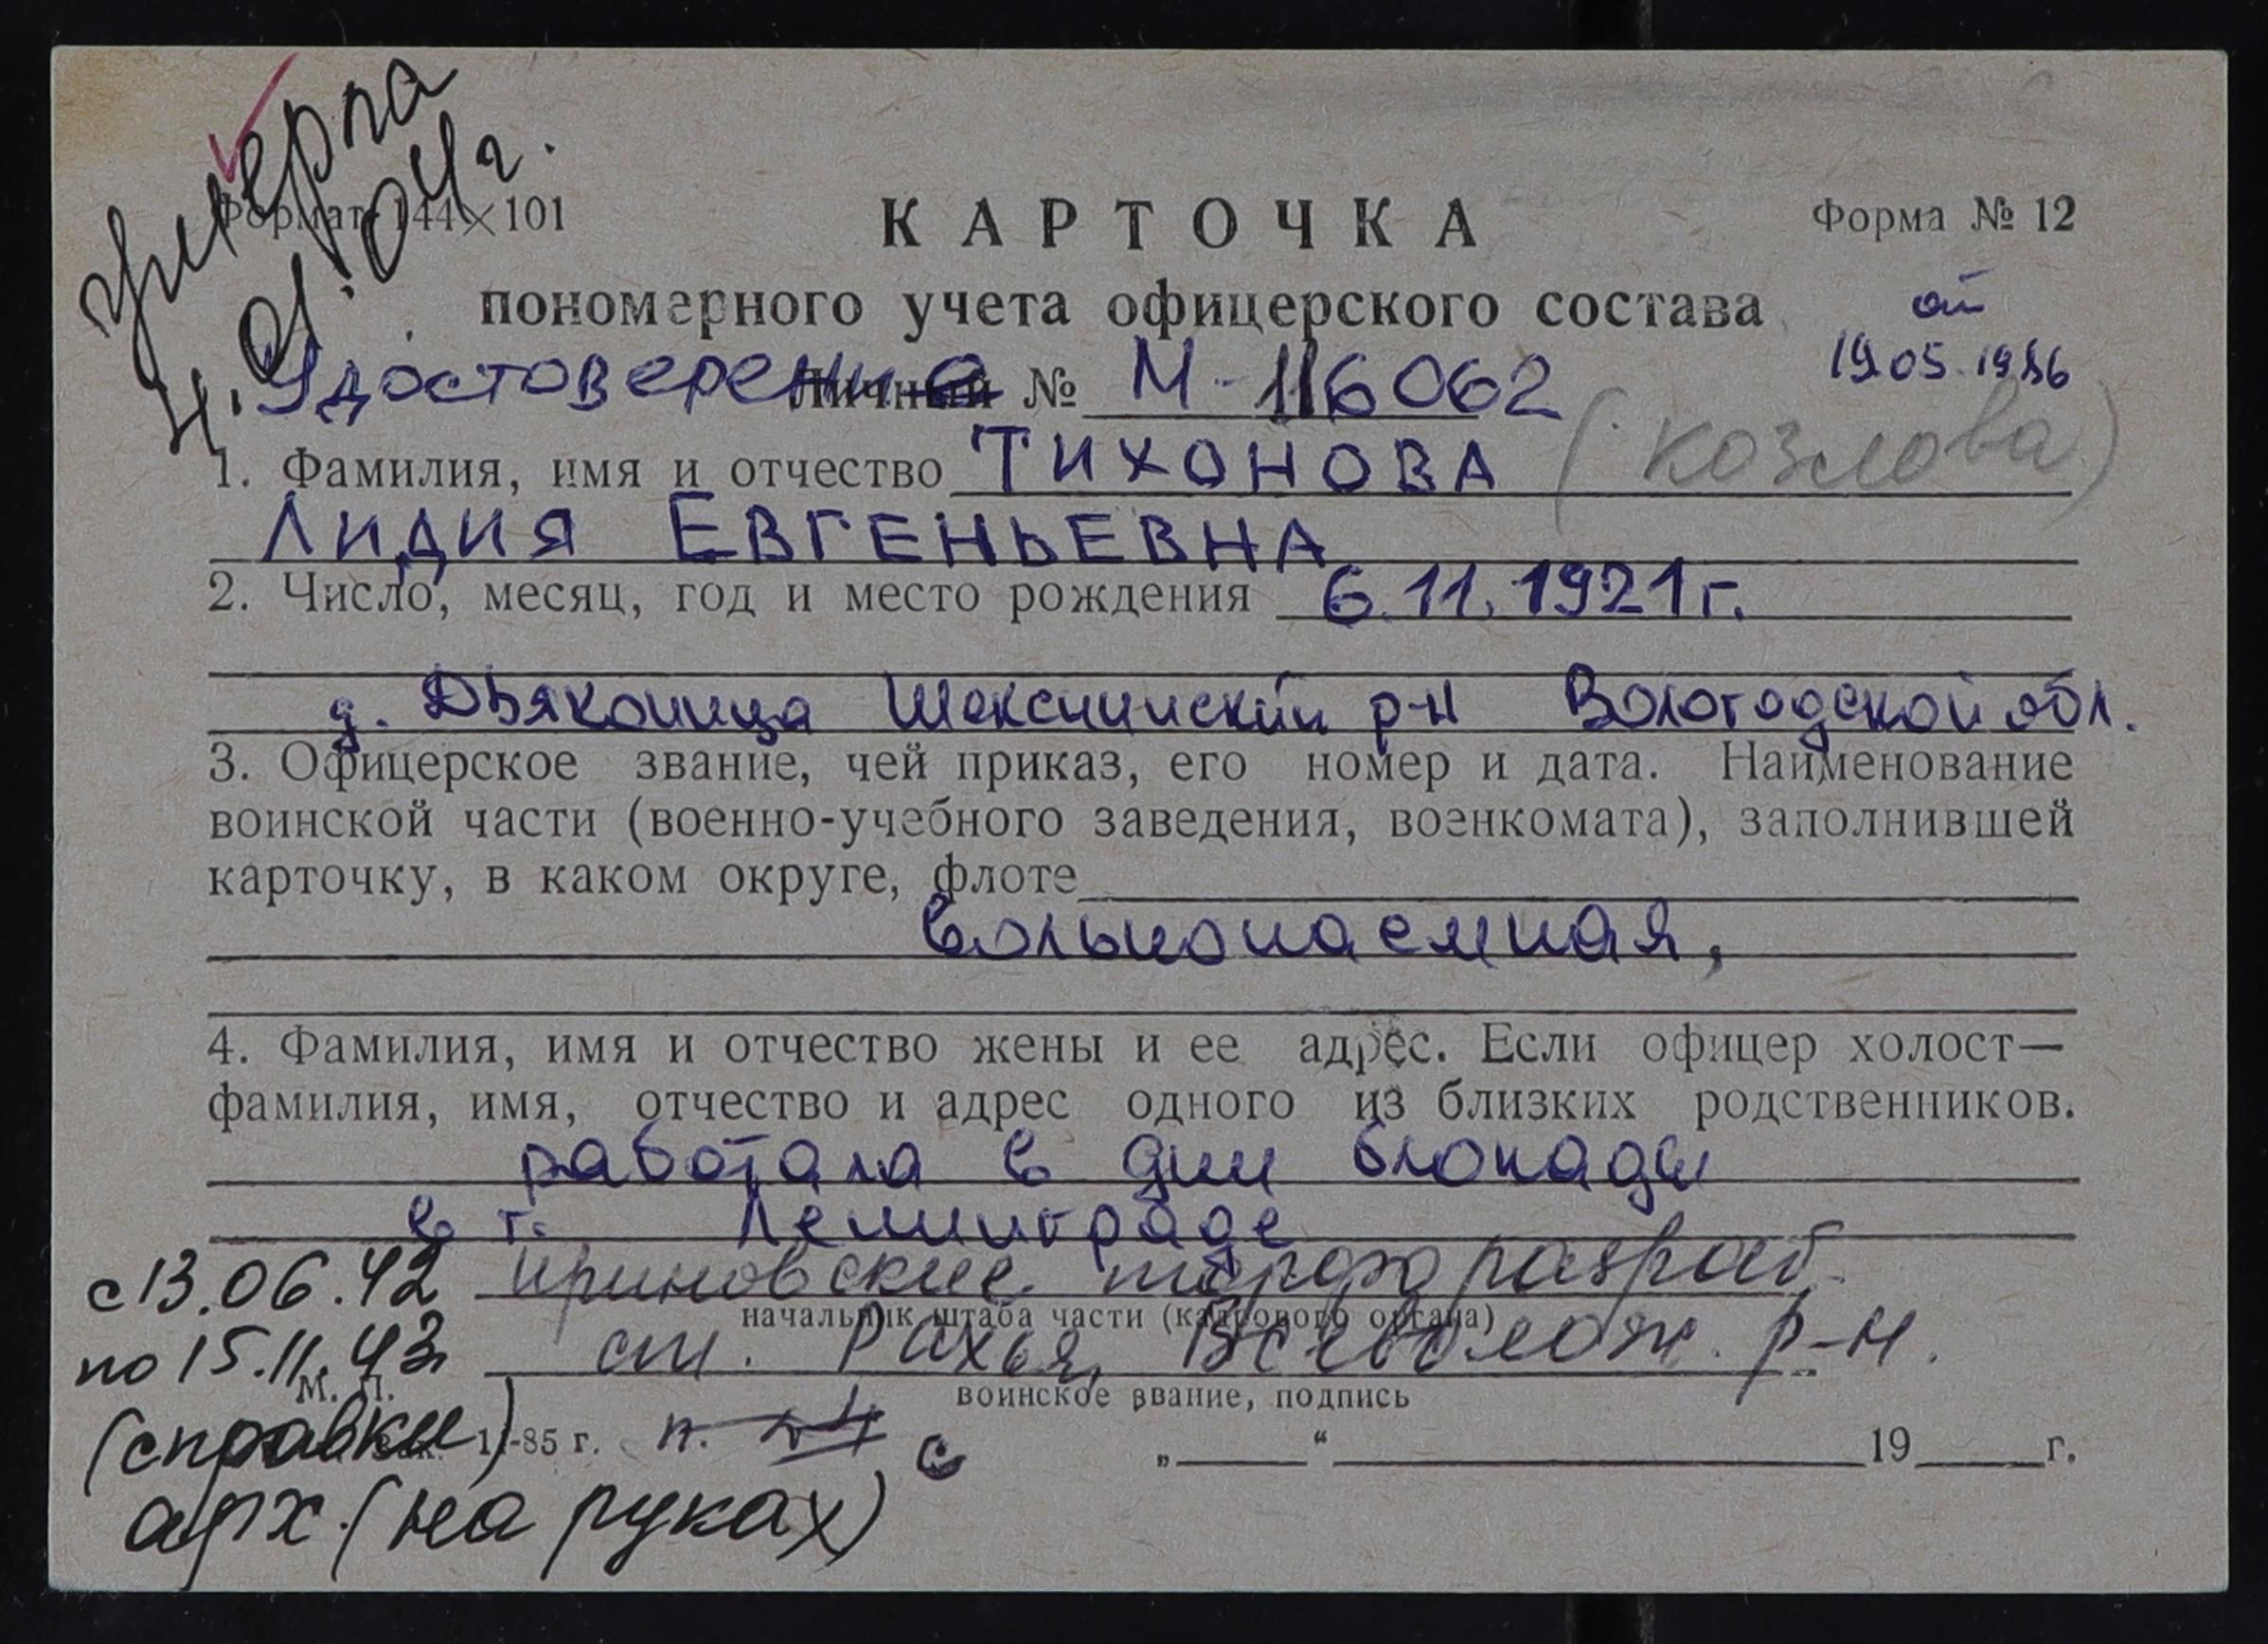 умерла
4.01.04г.
Формат 144×101
КАРТОЧКА
Форма № 12
пономерного учета офицерского состава
от
19.05.1986
Удостоверение Личный № М-116062
1. Фамилия, имя и отчество ТИХОНОВА (Козлова)
ЛИДИЯ ЕВГЕНЬЕВНА
2. Число, месяц, год и место рождения 6.11.1921г.
д. Дьяконица Шекснинский р-н Вологодской обл.
3. Офицерское звание, чей приказ, его номер и дата. Наименование
воинской части (военно-учебного заведения, военкомата), заполнившей
карточку, в каком округе, флоте
вольнонаемная,
4. Фамилия, имя и отчество жены и ее адрес. Если офицер холост—
фамилия, имя, отчество и адрес одного из близких родственников.
работала в дни блокады
в г. Ленинграде
с 13.06.42 Ириновские торфоразраб.
начальник штаба части (кадрового органа)
по 15.11.43 ст. Рахья, Всеволож. р-н.
М. П.
воинское звание, подпись
(справки) -85 г. п. с „ “ 19 г.
арх. (на руках)